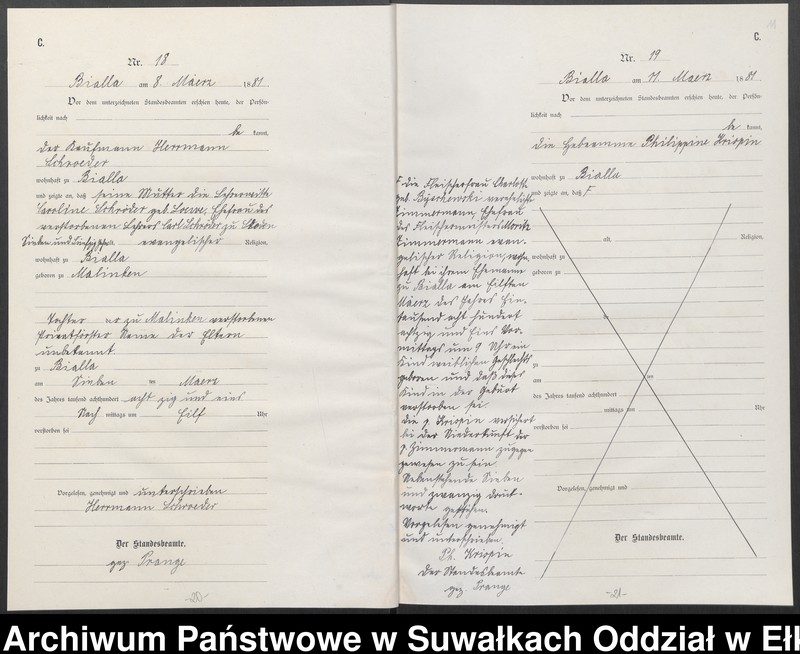 C.
Nr. 18
Bialla am 8 Maerz 1881
Vor dem unterzeichneten Standesbeamten erschien heute, der Persön-
lichkeit nach
be kannt,
der Kaufmann Herrmann
Schroeder
wohnhaft zu Bialla
und zeigte an, daß seine Mutter die Lehrerwittwe
Caroline Schröder geb. Loewe, Ehefrau des
verstorbenen Lehrers Carl Schröder zu
Sieben und alt, evangelischer Religion,
wohnhaft zu Bialla
geboren zu Malinken
Tochter zu Malinken verstorbenen
Privatförster Name der Eltern
unbekannt
zu Bialla
am Sieben ten Maerz
des Jahres tausend achthundert acht zig und eins
Nach mittags um Eilf Uhr
verstorben sei
Vorgelesen, genehmigt und unterschrieben
Herrmann Schroeder
Der Standesbeamte.
gez Prange
-20-
C.
Nr. 19
Bialla am 11. Maerz 1881
Vor dem unterzeichneten Standesbeamten erschien heute, der Persön-
lichkeit nach
be kannt,
die Hebeamme Philippine Kriopin
wohnhaft zu Bialla
und zeigte an, daß F
F die Fleischerfrau Charlotte
geb. verehelicht
Zimmermann, Ehefrau
des Fleischermeisters Moritz
Zimmermann evan-
gelischer Religion, wohn-
haft bei ihrem Ehemanne
zu Bialla am Eilften
Maerz des Jahres Ein-
tausend acht hundert
achtzig und Eins Vor-
mittags um 9 Uhr ein
Kind weiblichen Geschlechts
geboren und daß dieses
Kind in der Geburt
verstorben sei.
Die p. Kriopin versichert
bei der Niederkunft der
p Zimmermann zugegen
gewesen zu sein
Nebenstehende Sieben
und zwanzig Druck-
worte gestrichen.
Vorgelesen genehmigt
und unterschrieben.
Ph. Kriopin
Der Standesbeamte
gez. Prange
alt, Religion,
wohnhaft zu
geboren zu
zu
zu
am ten
des Jahres tausend achthundert
mittags um Uhr
verstorben sei
Vorgelesen, genehmigt und
Der Standesbeamte.
-21-
Archiwum Państwowe w Suwałkach Oddział w Ełk